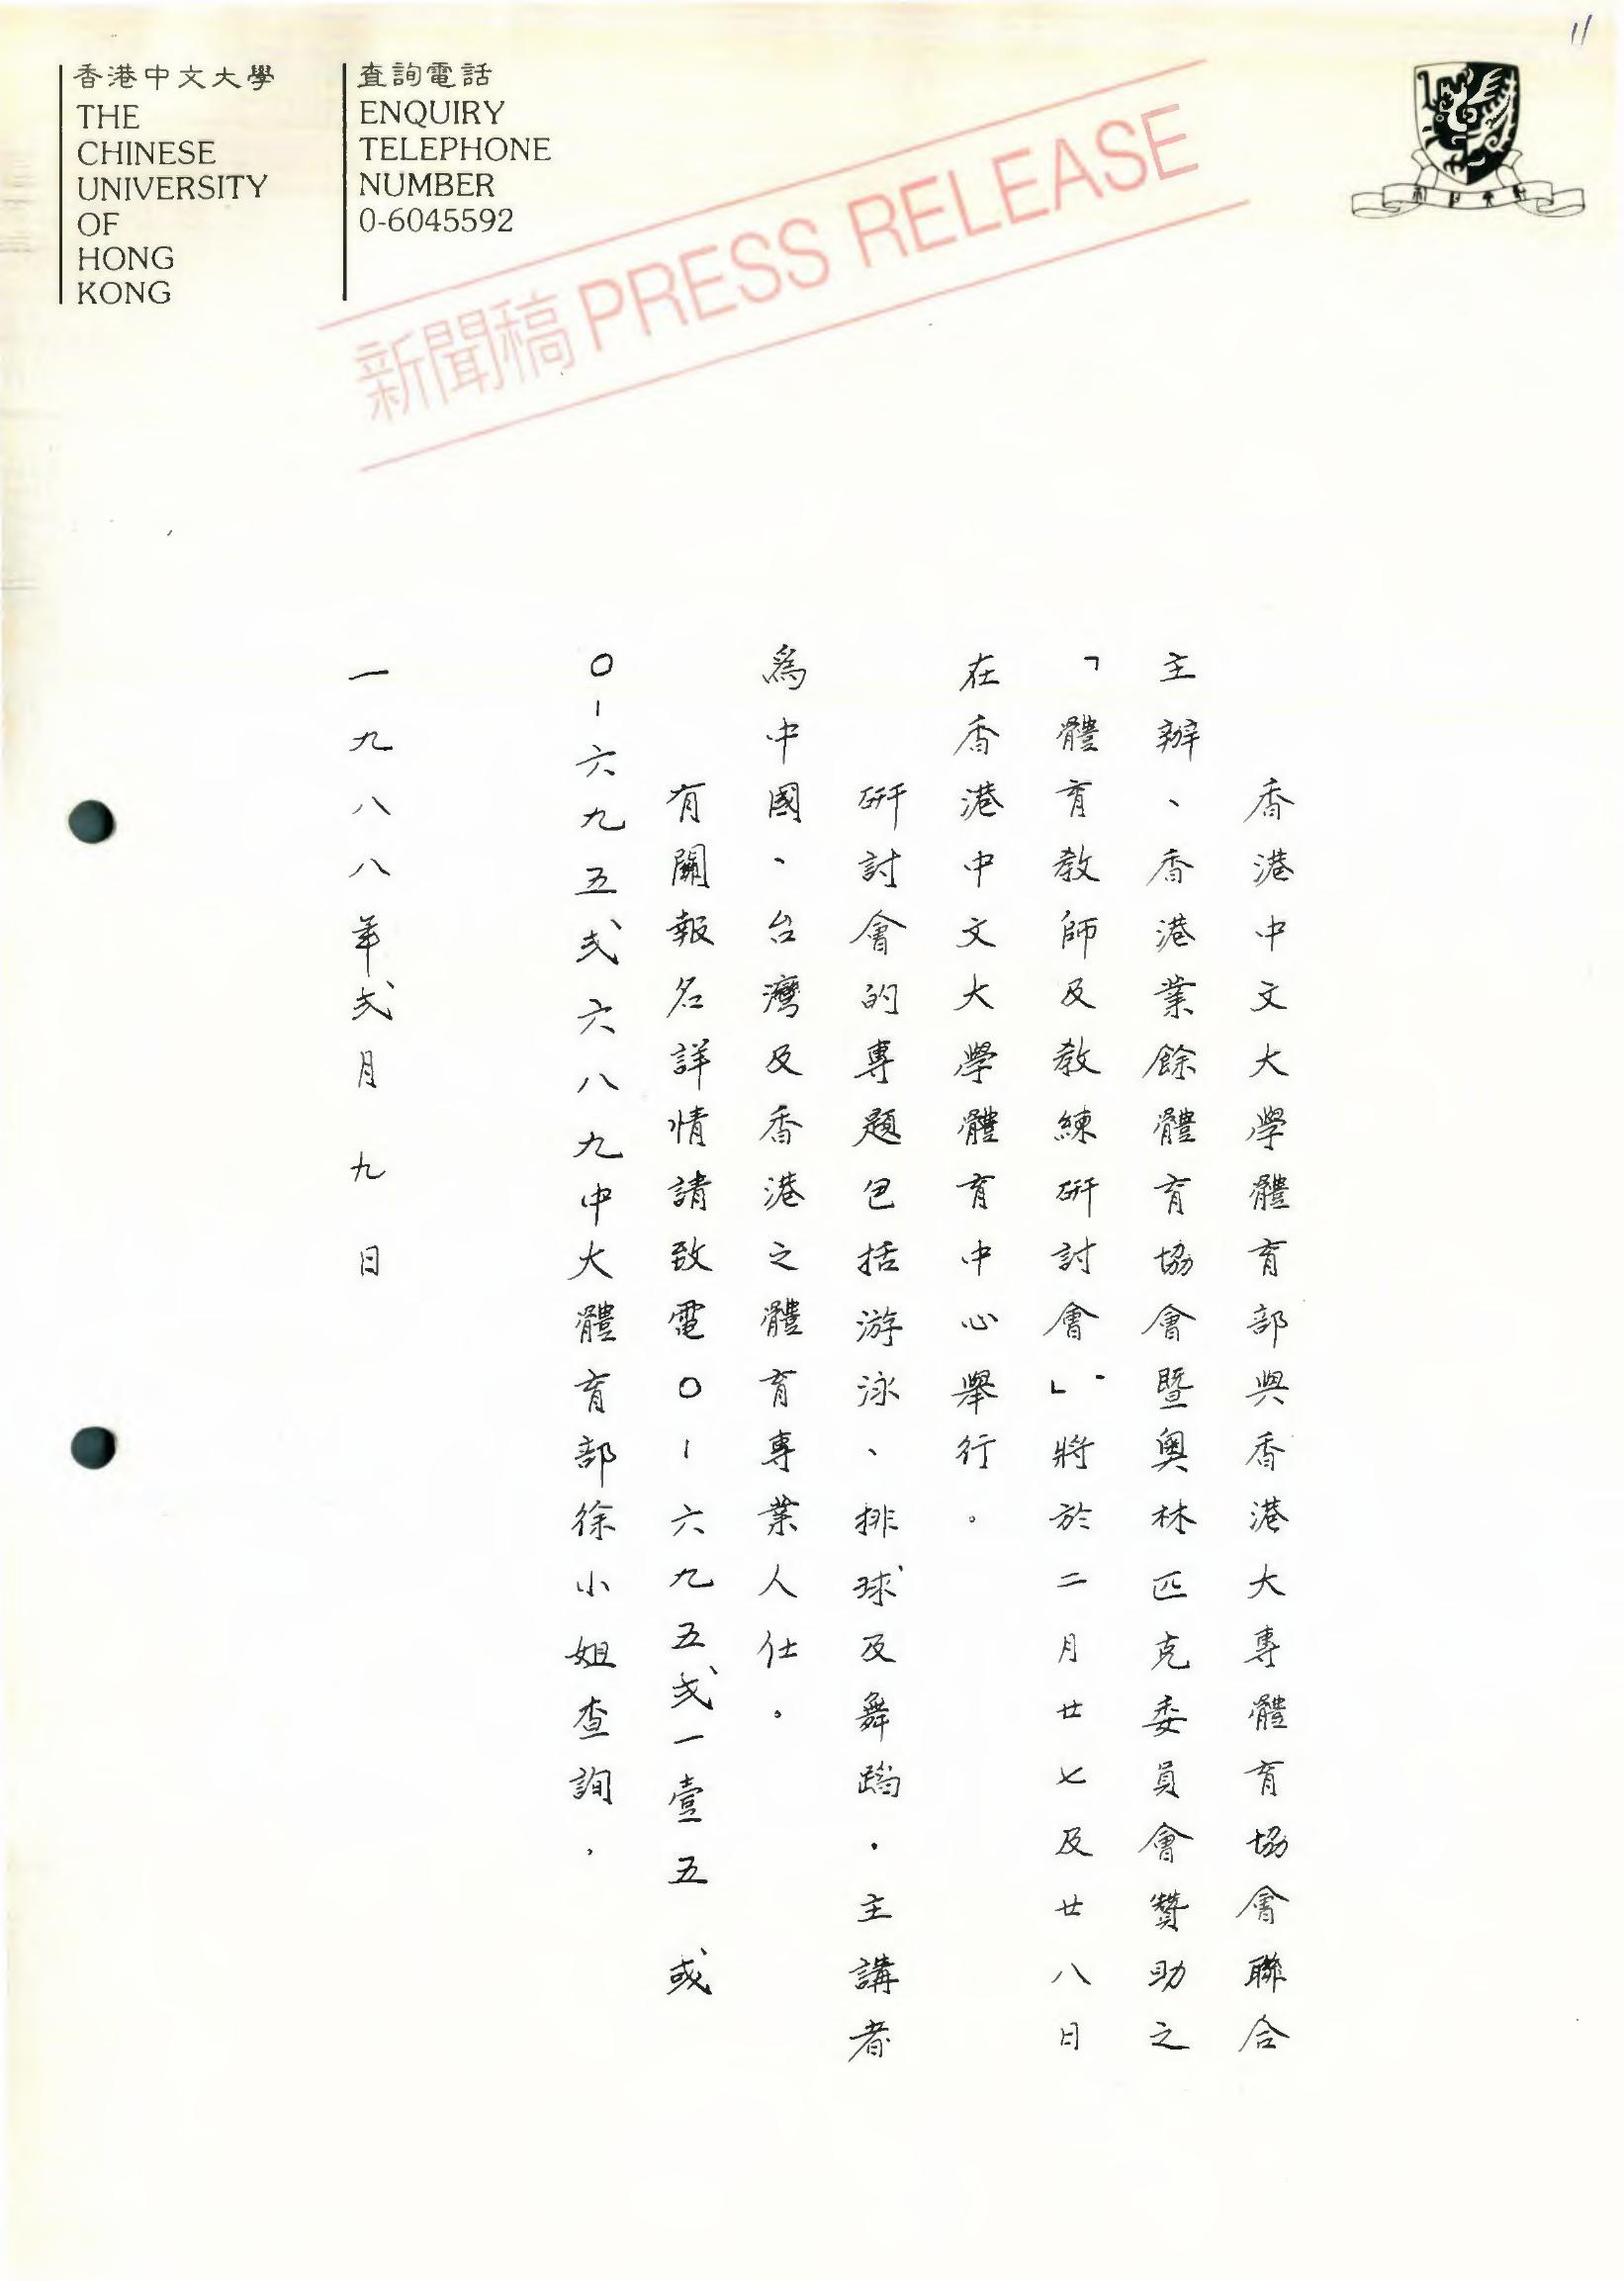 11
香港中文大學
THE
CHINESE
UNIVERSITY
OF
HONG
KONG
查詢電話
ENQUIRY
TELEPHONE
NUMBER
0-6045592
新聞稿 PRESS RELEASE
香港中文大學體育部與香港大專體育協會聯合
主辦、香港業餘體育協會暨奧林匹克委員會贊助之
「體育教師及教練研討會」將於二月廿七及廿八日
在香港中文大學體育中心舉行。
研討會的專題包括游泳、排球及舞蹈．主講者
為中國、台灣及香港之體育專業人仕。
有關報名詳情請致電〇-六九五弍一壹五 或
〇-六九五弍六八九中大體育部徐小姐查詢．
一九八八年弍月九日